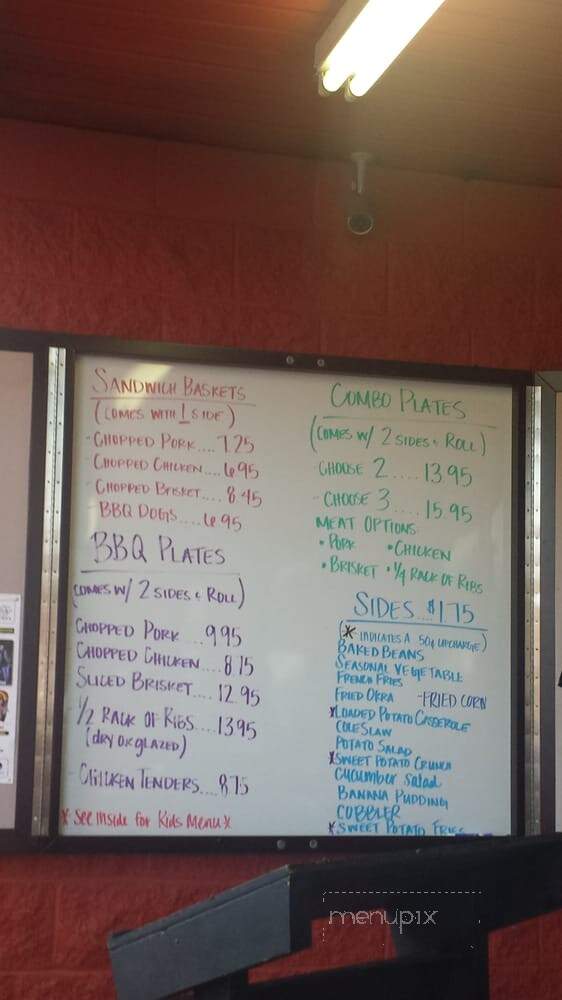 SANDWICH BASKETS
(COMES WITH 1 SIDE)
-CHOPPED PORK....7.25
-CHOPPED CHICKEN....6.95
-CHOPPED BRISKET....8.45
-BBQ DOGS.....6.95
BBQ PLATES
(COMES W/ 2 SIDES & ROLL)
CHOPPED PORK....9.95
CHOPPED CHICKEN....8.75
SLICED BRISKET....12.95
1/2 RACK OF RIBS....13.95
(DRY OR GLAZED)
-CHICKEN TENDERS....8.75
*See Inside for Kids Menu*
COMBO PLATES
(COMES W/ 2 SIDES & ROLL)
-CHOOSE 2.....13.95
-CHOOSE 3.....15.95
MEAT OPTIONS:
•PORK •CHICKEN
•BRISKET •1/4 RACK OF RIBS
SIDES...$1.75
(* - INDICATES A 50¢ UPCHARGE)
BAKED BEANS
SEASONAL VEGETABLE
FRENCH FRIES
FRIED OKRA -FRIED CORN
*LOADED POTATO CASSEROLE
COLESLAW
POTATO SALAD
*SWEET POTATO CRUNCH
Cucumber Salad
BANANA PUDDING
COBBLER
*SWEET POTATO FRIES
menupix